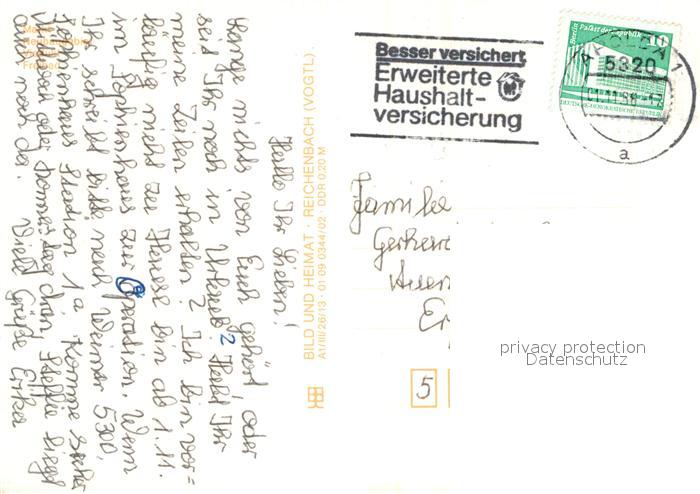 Hallo Ihr Lieben!
Lange nichts von Euch gehört, oder
seid Ihr noch in Urlaub? Habt Ihr
meine Zeilen erhalten? Ich bin vor=
läufig nicht zu Hause bin ab 1.11.
im Sophienhaus zur Operation. Wenn
Ihr schreibt bitte nach Weimar 5300,
Sophienhaus Station 1a Komme sicher
oder Donnerstag dran Steffie liegt
auch noch da. Viele Grüße Erika
BILD UND HEIMAT · REICHENBACH (VOGTL).
A1/III/26/13 · 01 09 0344/02 · DDR 0,20 M
Besser versichert
Erweiterte
Haushalt-
versicherung
Berlin Palast der Republik
10
DEUTSCHE DEMOKRATISCHE REPUBLIK
5320
a
Familie
5
privacy protection
Datenschutz